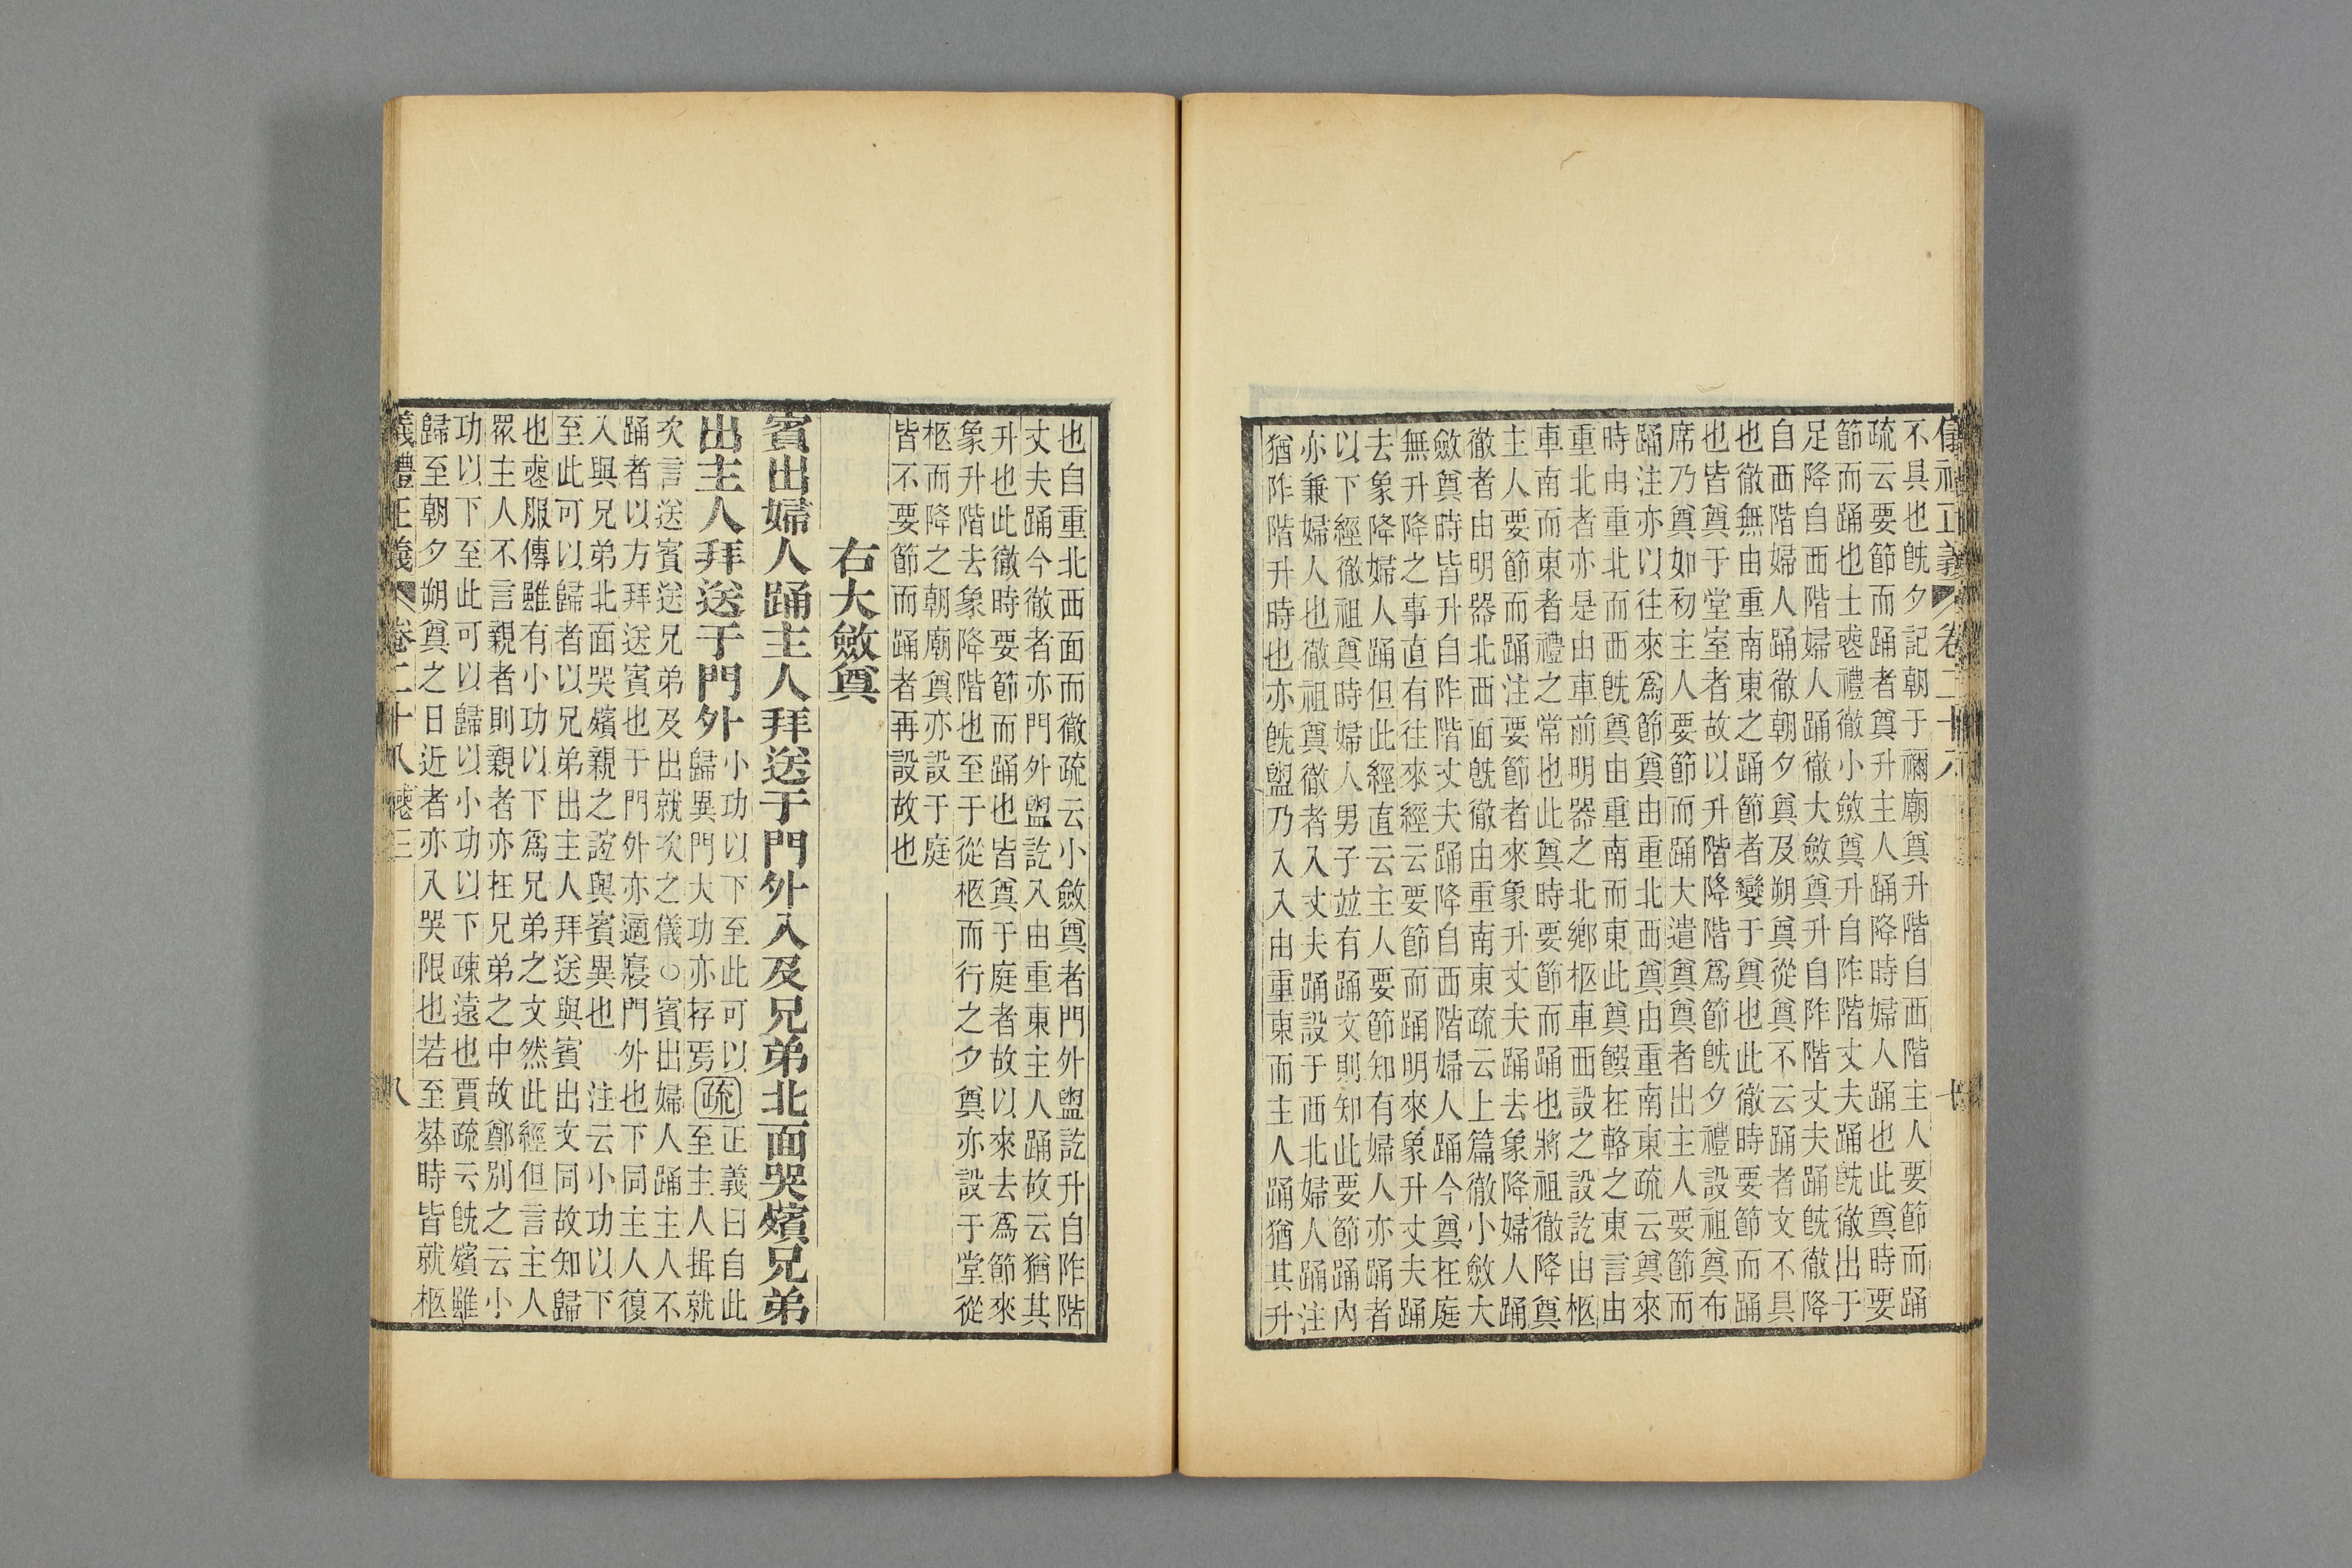 不具也旣夕記朝于禰廟奠升階自西階主人要節而踊
疏云要節而踊者奠升主人踊降時婦人踊也此奠時要
節而踊也士喪禮徹小斂奠升自阼階丈夫踊旣徹出于
足降自西階婦人踊徹大斂奠升自阼階丈夫踊旣徹降
自西階婦人踊徹朝夕奠及朔奠從奠不云踊者文不具
也徹無由重南東之踊節者變于奠也此徹時要節而踊
也皆奠于堂室者故以升階降階爲節旣夕禮設祖奠布
席乃奠如初主人要節而踊大遣奠奠者出主人要節而
踊注亦以往來爲節奠由重北西奠由重南東疏云奠來
時由重北而西旣奠由重南而東此奠饌在輅之東言由
重北者亦是由車前明器之北鄉柩車西設之設訖由柩
車南而東者禮之常也此奠時要節而踊也將祖徹降奠
主人要節而踊注要節者來象升丈夫踊去象降婦人踊
徹者由明器北西面旣徹由重南東疏云上篇徹小斂大
斂奠時皆升自阼階丈夫踊降自西階婦人踊今奠在庭
無升降之事直有往來經云要節而踊明來象升丈夫踊
去象降婦人踊但此經直云主人要節知有婦人亦踊者
以下經徹祖奠時婦人男子並有踊文則知此要節踊內
亦兼婦人也徹祖奠徹者入丈夫踊設于西北婦人踊注
猶阼階升時也亦旣盥乃入入由重東而主人踊猶其升
也自重北西面而徹疏云小斂奠者門外盥訖升自阼階
丈夫踊今徹者亦門外盥訖入由重東主人踊故云猶其
升也此徹時要節而踊也皆奠于庭者故以來去爲節來
象升階去象降階也至于從柩而行之夕奠亦設于堂從
柩而降之朝廟奠亦設于庭
皆不要節而踊者再設故也
右大斂奠
賓出婦人踊主人拜送于門外入及兄弟北面哭殯兄弟
出主人拜送于門外
小功以下至此可以
歸異門大功亦存焉
疏
正義曰自此
至主人揖就
次言送賓送兄弟及出就次之儀○賓出婦人踊主人不
踊者以方拜送賓也于門外亦適寢門外也下同主人復
入與兄弟北面哭殯親之誼與賓異也　注云小功以下
至此可以歸者以兄弟出主人拜送與賓出文同故知歸
也喪服傳雖有小功以下爲兄弟之文然此經但言主人
眾主人不言親者則親者亦在兄弟之中故鄭別之云小
功以下至此可以歸以小功以下疎遠也賈疏云旣殯雖
歸至朝夕朔奠之日近者亦入哭限也若至葬時皆就柩
儀禮正義　卷二十八　喪三　八